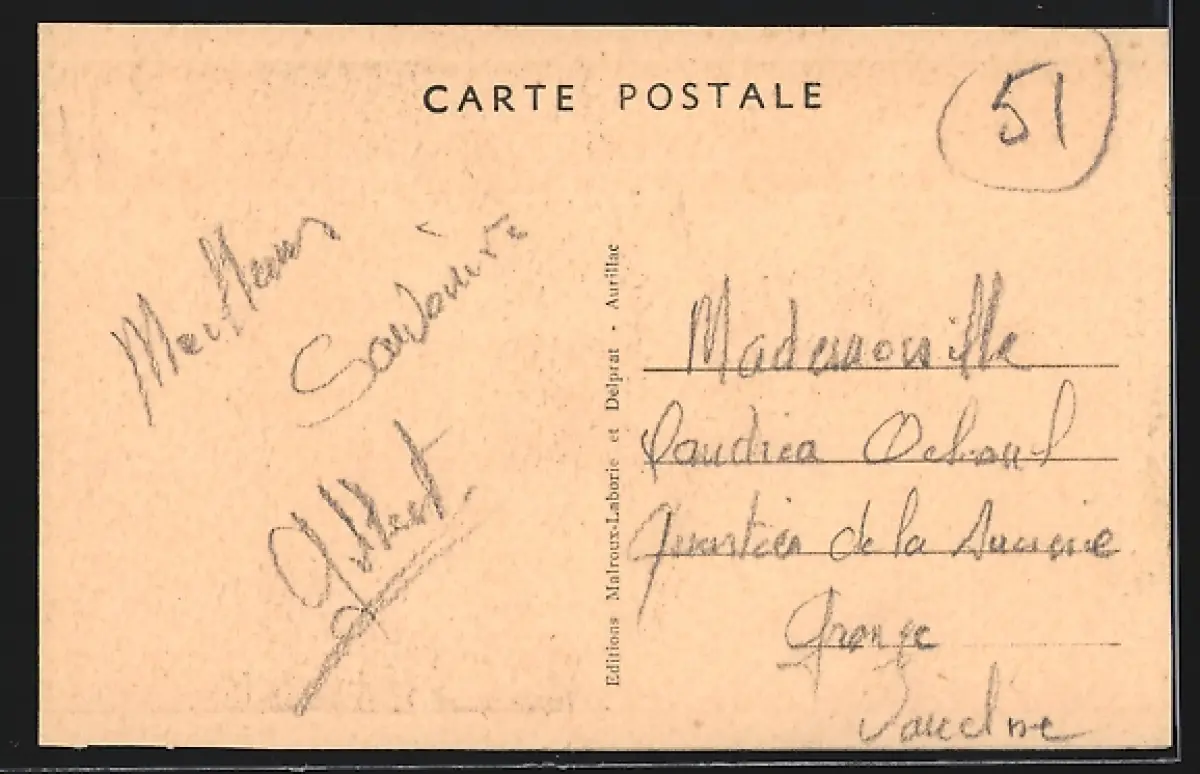 CARTE POSTALE
51
Meilleurs
Souvenirs
Gilbert
Editions Malroux-Laborie et Delprat - Aurillac
Mademoiselle
Quartier de la
Orange
Vaucluse